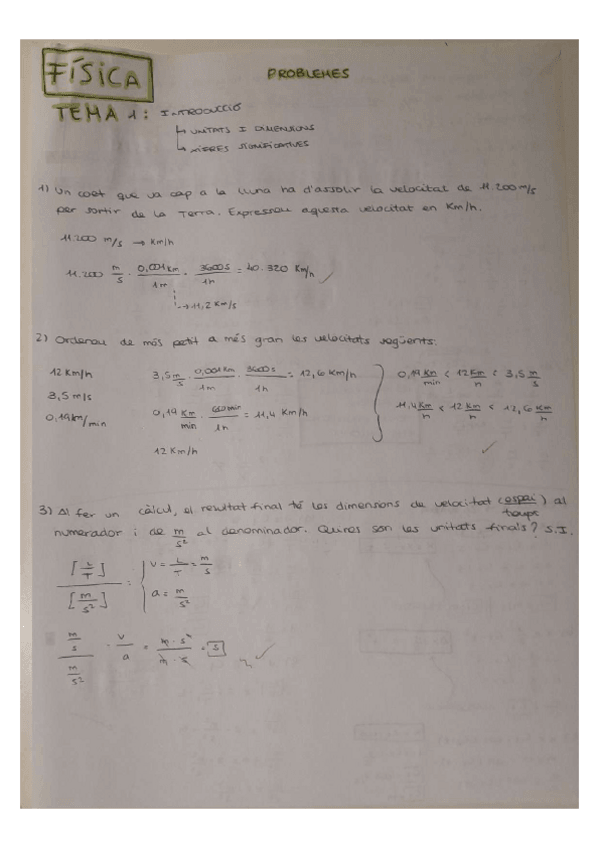 FÍSICA
PROBLEMES
TEMA 1: INTRODUCCIÓ
↳ UNITATS I DIMENSIONS
↳ XIFRES SIGNIFICATIVES
1) Un coet que va cap a la lluna ha d'assolir la velocitat de 11.200 m/s
per sortir de la Terra. Expresseu aquesta velocitat en Km/h.
11.200 m/s → Km/h
11.200 m/s · 0,001Km/1m · 3600s/1h = 40.320 Km/h ✓
↳ 11,2 Km/s
2) Ordeneu de més petit a més gran les velocitats següents:
12 Km/h
3,5 m/s
0,19 km/min
3,5 m/s · 0,001Km/1m · 3600s/1h = 12,6 Km/h
0,19 Km/min · 60min/1h = 11,4 Km/h
12 Km/h
0,19 Km/min < 12 Km/h < 3,5 m/s
11,4 Km/h < 12 Km/h < 12,6 Km/h
✓
3) Al fer un càlcul, el resultat final té les dimensions de velocitat (espai/temps) al
numerador i de m/s² al denominador. Quines son les unitats finals? S.I.
[L/T] / [m/s²] = { v = L/T = m/s
a = m/s²
m/s / m/s² = v/a = m · s² / m · s = s ✓